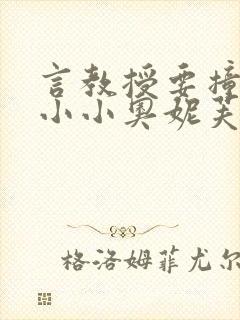 言教授要撞
小小奥妮芙
格洛姆菲尤尔